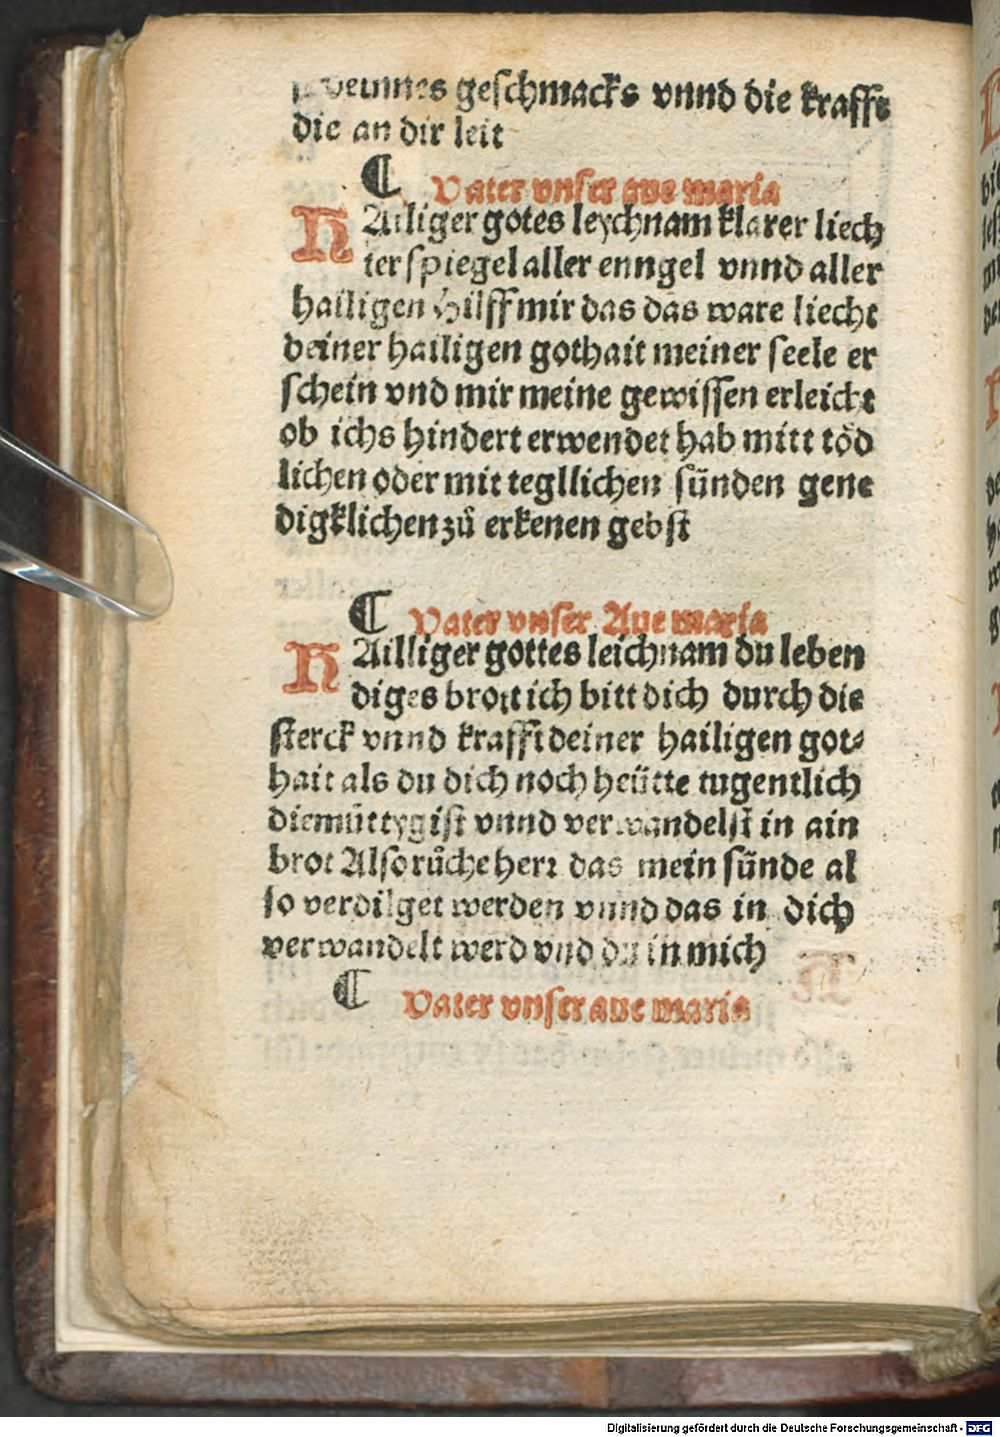 deinnes geschmacks vnnd die krafft
die an dir leit
¶ Vater vnser aue maria
HAiliger gotes leychnam klarer liech
ter spiegel aller enngel vnnd aller
hailigen hilff mir das das ware liecht
deiner hailigen gothait meiner seele er
schein vnd mir meine gewissen erleicht
ob ichs hindert erwendet hab mitt töd
lichen oder mit tegllichen sünden gene
digklichen zů erkenen gebst
¶ Vater vnser Aue maria
HAilliger gottes leichnam du leben
diges brott ich bitt dich durch die
sterck vnnd krafft deiner hailigen got⸗
hait als du dich noch heütte tugentlich
diemüttygist vnnd verwandelst in ain
brot Also růche herr das mein sünde al
so verdilget werden vnnd das in dich
verwandelt werd vnd du in mich
¶ Vater vnser aue maria
Digitalisierung gefördert durch die Deutsche Forschungsgemeinschaft - DFG